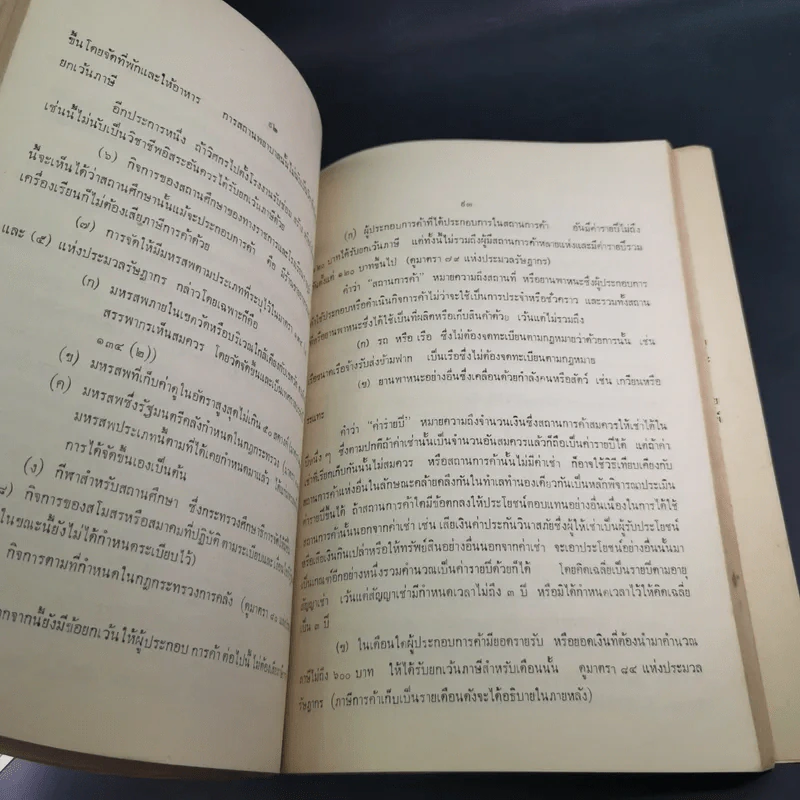 ๙๒
ขึ้นโดยจัดที่พักและให้อาหาร การสถานพยาบาลนั้นไม่
ยกเว้นภาษี
อีกประการหนึ่ง ถ้าวิศวกรไปตั้งโรงงานรับซ่อม
เช่นนี้ไม่นับเป็นวิชาชีพอิสระอันควรได้รับยกเว้นภาษีด้วย
(๖) กิจการของสถานศึกษาของทางราชการและ
นี้จะเห็นได้ว่าสถานศึกษานั้นแม้จะประกอบการค้า คือ มี
เครื่องเรียนก็ไม่ต้องเสียภาษีการค้าด้วย
(๗) การจัดให้มีมหรสพตามประเภทที่ระบุไว้ในมาตรา
และ (๕) แห่งประมวลรัษฎากร กล่าวโดยเฉพาะก็คือ
(ก) มหรสพภายในเขตวัดหรือบริเวณใกล้เคียงกับเขตวัด
สรรพากรเห็นสมควร โดยวัดจัดขึ้นและเป็น
๑๓๔ (๒))
(ข) มหรสพที่เก็บค่าดูในอัตราสูงสุดไม่เกิน ๕๐ สตางค์
(ค) มหรสพซึ่งรัฐมนตรีคลังกำหนดในกฎกระทรวง
มหรสพประเภทนี้ตามที่ได้เคยกำหนดมาแล้ว ได้แก่
การได้จัดขึ้นเองเป็นต้น
(ง) กีฬาสำหรับสถานศึกษา ซึ่งกระทรวงศึกษาธิการได้จัดขึ้น
๘) กิจการของสโมสรหรือสมาคมที่ปฏิบัติ ตามระเบียบและ
ในขณะนี้ยังไม่ได้กำหนดระเบียบไว้)
กิจการตามที่กำหนดในกฎกระทรวงการคลัง (ดูมาตรา ๘๐
กจากนี้ยังมีข้อยกเว้นให้ผู้ประกอบ การค้า ต่อไปนี้ไม่ต้องเสีย
๙๓
(ก) ผู้ประกอบการค้าที่ได้ประกอบการในสถานการค้า อันมีค่ารายปีไม่ถึง
๑๒๐ บาทได้รับยกเว้นภาษี แต่ทั้งนี้ไม่รวมถึงผู้มีสถานการค้าหลายแห่งและมีค่ารายปีรวม
กันตั้งแต่ ๑๒๐ บาทขึ้นไป (ดูมาตรา ๗๙ แห่งประมวลรัษฎากร)
คำว่า "สถานการค้า" หมายความถึงสถานที่ หรือยานพาหนะซึ่งผู้ประกอบการ
ค้าใช้ประกอบการหรือดำเนินกิจการค้าไม่ว่าจะใช้เป็นการประจำหรือชั่วคราว และรวมทั้งสถาน
ที่หรือยานพาหนะซึ่งได้ใช้เป็นที่ผลิตหรือเก็บสินค้าด้วย เว้นแต่ไม่รวมถึง
(ก) รถ หรือ เรือ ซึ่งไม่ต้องจดทะเบียนตามกฎหมายว่าด้วยการนั้น เช่น
เรือขนาดเรือจ้างรับส่งข้ามฟาก เป็นเรือซึ่งไม่ต้องจดทะเบียนตามกฎหมาย
(ข) ยานพาหนะอย่างอื่นซึ่งเคลื่อนด้วยกำลังคนหรือสัตว์ เช่น เกวียนหรือ
รถแทะ
คำว่า "ค่ารายปี" หมายความถึงจำนวนเงินซึ่งสถานการค้าสมควรให้เช่าได้ใน
ปีหนึ่งๆ ซึ่งตามปกติถ้าค่าเช่านั้นเป็นจำนวนอันสมควรแล้วก็ถือเป็นค่ารายปีได้ แต่ถ้าค่า
เช่าที่เรียกเก็บกันนั้นไม่สมควร หรือสถานการค้านั้นไม่มีค่าเช่า ก็อาจใช้วิธีเทียบเคียงกับ
สถานการค้าแห่งอื่นในลักษณะคล้ายคลึงกันในทำเลทำนองเดียวกันเป็นหลักพิจารณาประเมิน
ค่ารายปีขึ้นได้ ถ้าสถานการค้าใดมีข้อตกลงให้ประโยชน์ตอบแทนอย่างอื่นเนื่องในการได้ใช้
สถานการค้านั้นนอกจากค่าเช่า เช่น เสียเงินค่าประกันวินาศภัยซึ่งผู้ให้เช่าเป็นผู้รับประโยชน์
หรือเสียเงินกินเปล่าหรือให้ทรัพย์สินอย่างอื่นนอกจากค่าเช่า จะเอาประโยชน์อย่างอื่นนั้นมา
เป็นเกณฑ์อีกอย่างหนึ่งรวมคำนวณเป็นค่ารายปีด้วยก็ได้ โดยคิดเฉลี่ยเป็นรายปีตามอายุ
สัญญาเช่า เว้นแต่สัญญาเช่ามีกำหนดเวลาไม่ถึง ๓ ปี หรือมิได้กำหนดเวลาไว้ให้คิดเฉลี่ย
เป็น ๓ ปี
(ข) ในเดือนใดผู้ประกอบการค้ามียอดรายรับ หรือยอดเงินที่ต้องนำมาคำนวณ
ภาษีไม่ถึง ๖๐๐ บาท ให้ได้รับยกเว้นภาษีสำหรับเดือนนั้น ดูมาตรา ๘๔ แห่งประมวล
รัษฎากร (ภาษีการค้าเก็บเป็นรายเดือนดังจะได้อธิบายในภายหลัง)